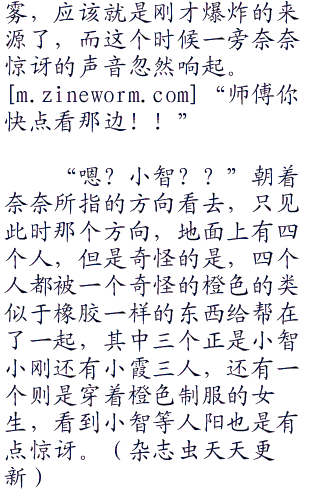 雾，应该就是刚才爆炸的来
源了，而这个时候一旁奈奈
惊讶的声音忽然响起。
[m.zineworm.com]“师傅你
快点看那边！！”
“嗯？小智？？”朝着
奈奈所指的方向看去，只见
此时那个方向，地面上有四
个人，但是奇怪的是，四个
人都被一个奇怪的橙色的类
似于橡胶一样的东西给帮在
了一起，其中三个正是小智
小刚还有小霞三人，还有一
个则是穿着橙色制服的女
生，看到小智等人阳也是有
点惊讶。（杂志虫天天更
新）